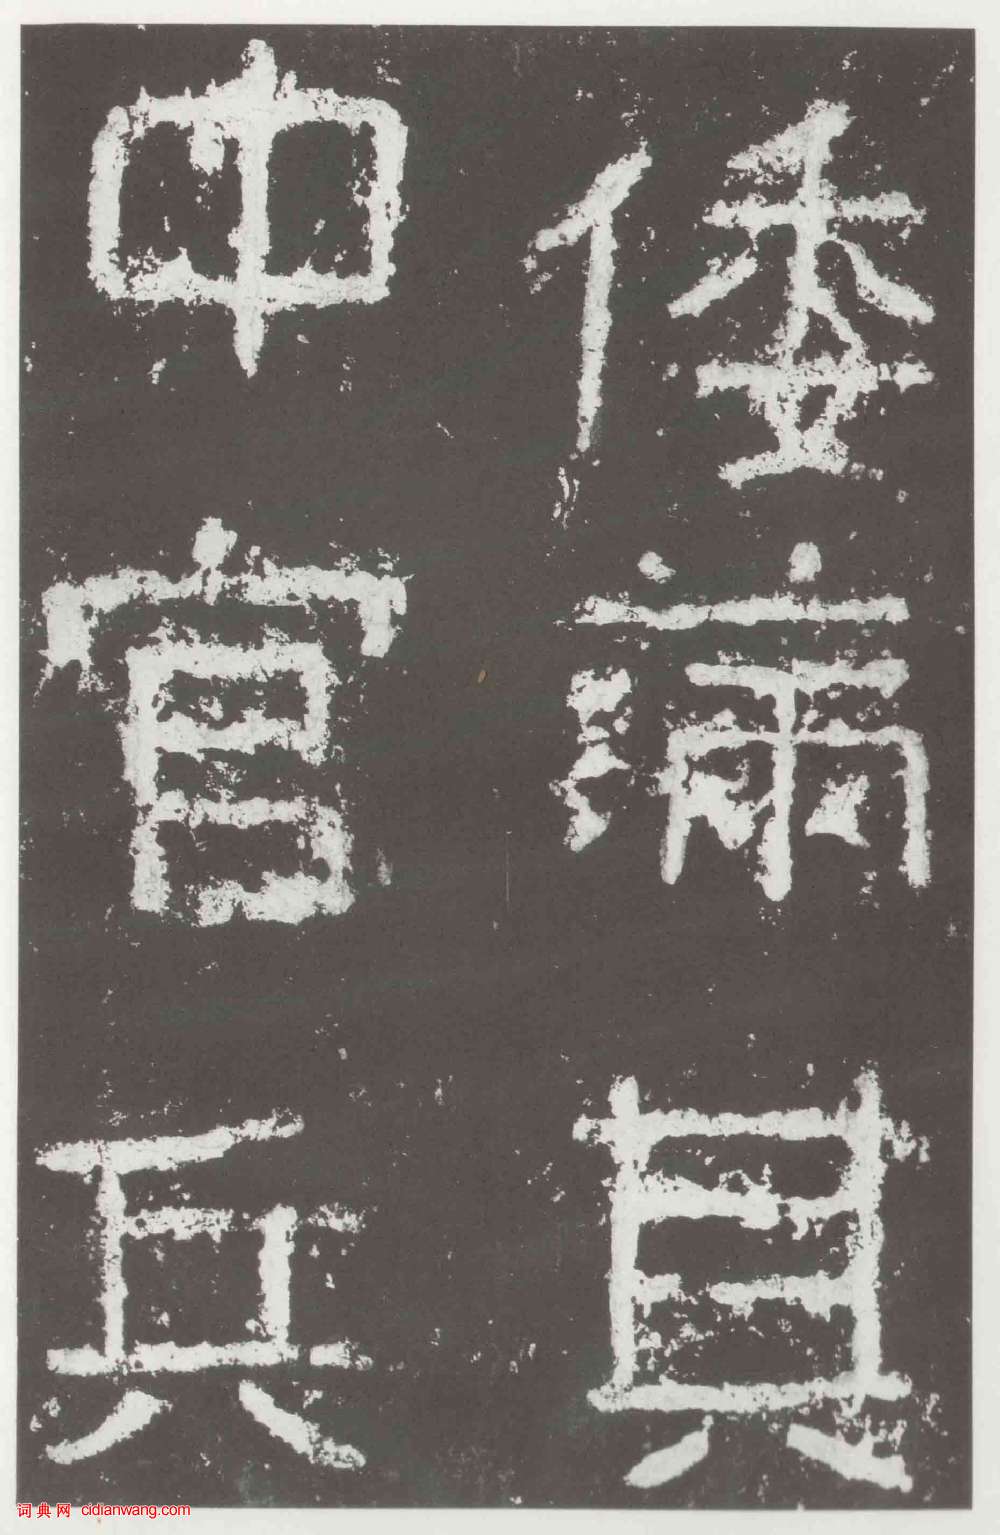 倭滿其
中官兵
词典网 cidianwang.com